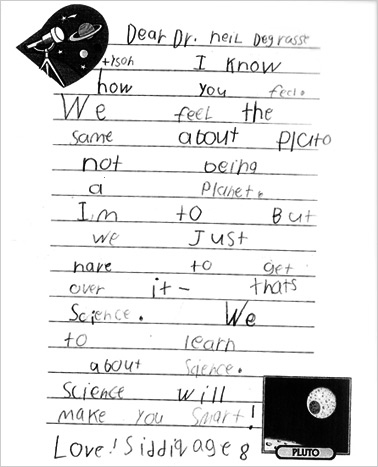 Dear Dr. neil Degrasse
tyson I Know
how you feel.
We feel the
same about Pluto
not being
a Planet.
I,m to But
we Just
have to get
over it- thats
Science. We
to learn
about Science.
Science will
make you Smart!
Love! Siddiq age 8
PLUTO